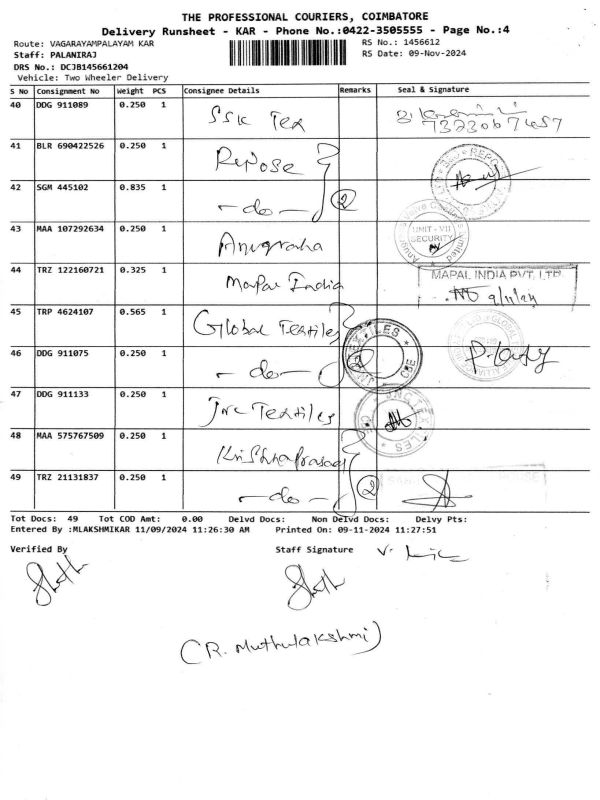 THE PROFESSIONAL COURIERS, COIMBATORE
Delivery Runsheet - KAR - Phone No.:0422-3505555 - Page No.:4
Route: VAGARAYAMPALAYAM KAR RS No.: 1456612
Staff: PALANIRAJ RS Date: 09-Nov-2024
DRS No.: DCJB145661204
Vehicle: Two Wheeler Delivery
S No Consignment No Weight PCS Consignee Details Remarks Seal & Signature
40 DDG 911089 0.250 1 SSK Tex
41 BLR 690422526 0.250 1 Repose
42 SGM 445102 0.835 1 -do- 2
43 MAA 107292634 0.250 1 Anugraha UNIT - VII SECURITY
44 TRZ 122160721 0.325 1 Mapal India MAPAL INDIA PVT. LTD.
45 TRP 4624107 0.565 1 Global Textiles
46 DDG 911075 0.250 1 -do- 2
47 DDG 911133 0.250 1 Textiles
48 MAA 575767509 0.250 1 Krishnaprasad
49 TRZ 21131837 0.250 1 -do- 2
Tot Docs: 49 Tot COD Amt: 0.00 Delvd Docs: Non Delvd Docs: Delvy Pts:
Entered By :MLAKSHMIKAR 11/09/2024 11:26:30 AM Printed On: 09-11-2024 11:27:51
Verified By Staff Signature
(R. Muthulakshmi)